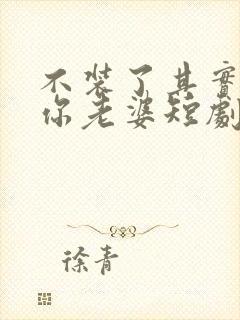 不装了其實
你老婆短劇
徐青